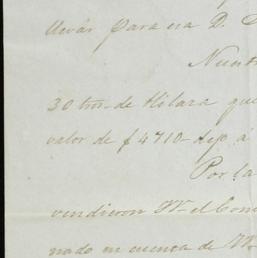 llevar para esa D.
Nuestr
30 tros. de Hilaza que
valor de £ 4710- dejo á
Por la
vendieron Vs. el Com
nado en cuenta de Vs